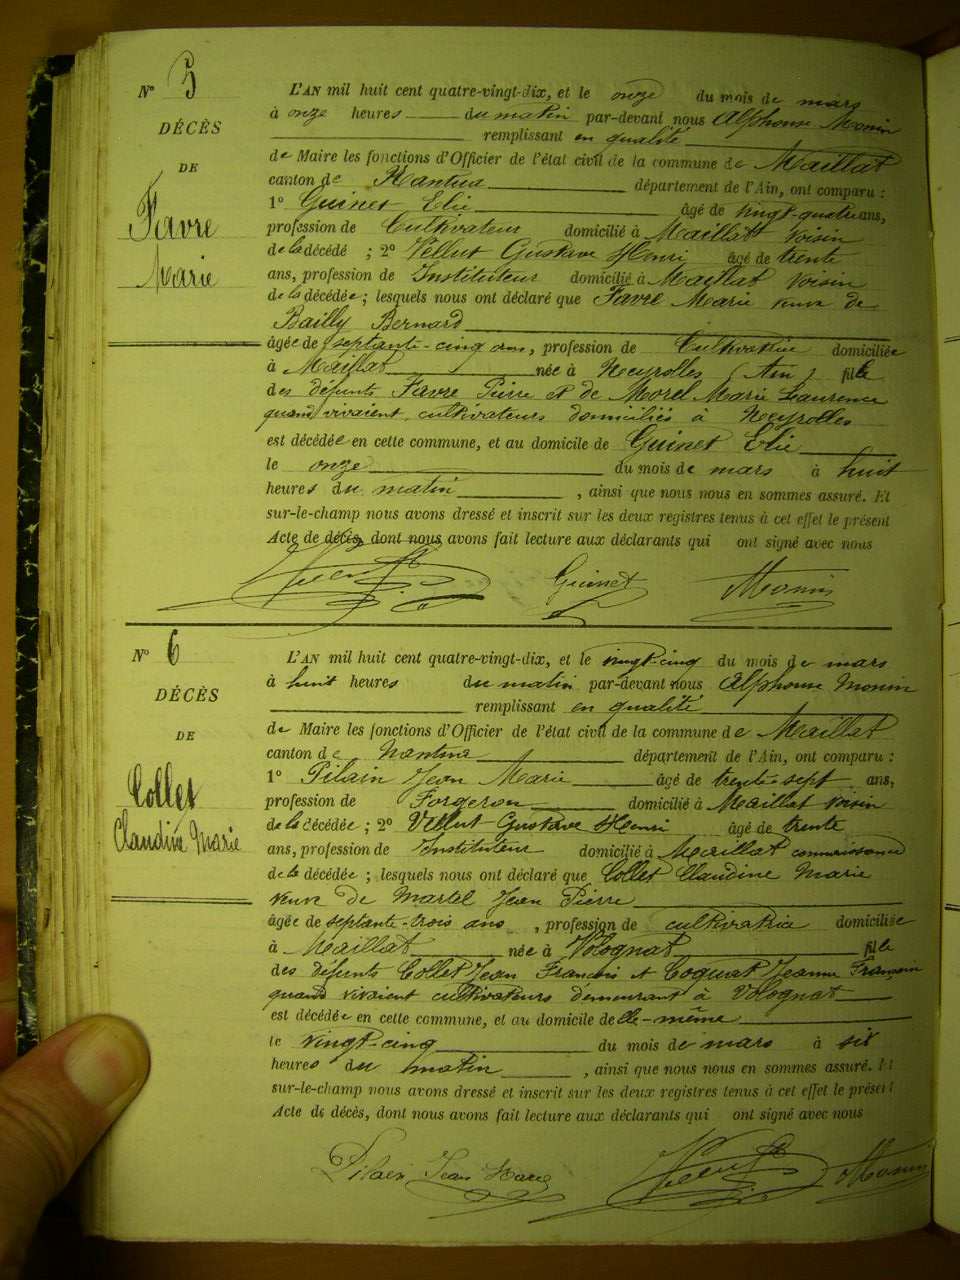 N° 5
DÉCÈS
DE
Favre
Marie
L'AN mil huit cent quatre-vingt-dix, et le onze du mois de mars
à onze heures du matin par-devant nous Alphonse Monin
remplissant en qualité
de Maire les fonctions d'Officier de l'état civil de la commune de Maillat
canton de Nantua département de l'Ain, ont comparu :
1° Guinet Elie âgé de vingt-quatre ans,
profession de Cultivateur domicilié à Maillat voisin
de la décédé ; 2° Vellut Gustave Henri âgé de trente
ans, profession de Instituteur domicilié à Maillat voisin
de la décédée ; lesquels nous ont déclaré que Favre Marie veuve de
Bailly Bernard
âgée de septante-cinq ans, profession de Cultivatrice domiciliée
à Maillat née à Neyrolles (Ain) fille
des défunts Favre Pierre et de Morel Marie Laurence
quand vivaient cultivateurs domiciliés à Neyrolles
est décédée en cette commune, et au domicile de Guinet Elie
le onze du mois de mars à huit
heures du matin , ainsi que nous nous en sommes assuré. Et
sur-le-champ nous avons dressé et inscrit sur les deux registres tenus à cet effet le présent
Acte de décès, dont nous avons fait lecture aux déclarants qui ont signé avec nous
Vellut Guinet Monin
N° 6
DÉCÈS
DE
Collet
Claudine Marie
L'AN mil huit cent quatre-vingt-dix, et le vingt-cinq du mois de mars
à huit heures du matin par-devant nous Alphonse Monin
remplissant en qualité
de Maire les fonctions d'Officier de l'état civil de la commune de Maillat
canton de Nantua département de l'Ain, ont comparu :
1° Pilain Jean Marie âgé de trente-sept ans,
profession de Forgeron domicilié à Maillat voisin
de la décédée ; 2° Vellut Gustave Henri âgé de trente
ans, profession de Instituteur domicilié à Maillat connaissance
de la décédée ; lesquels nous ont déclaré que Collet Claudine Marie
veuve de Martel Jean Pierre
âgée de septante-trois ans , profession de cultivatrice domiciliée
à Maillat née à Volognat fille
des défunts Collet Jean François et Coquat Jeanne
quand vivaient cultivateurs demeurant à Volognat
est décédée en cette commune, et au domicile delle-même
le vingt-cinq du mois de mars à six
heures du matin , ainsi que nous nous en sommes assuré. Et
sur-le-champ nous avons dressé et inscrit sur les deux registres tenus à cet effet le présent
Acte de décès, dont nous avons fait lecture aux déclarants qui ont signé avec nous
Pilain Jean Marie Vellut Monin